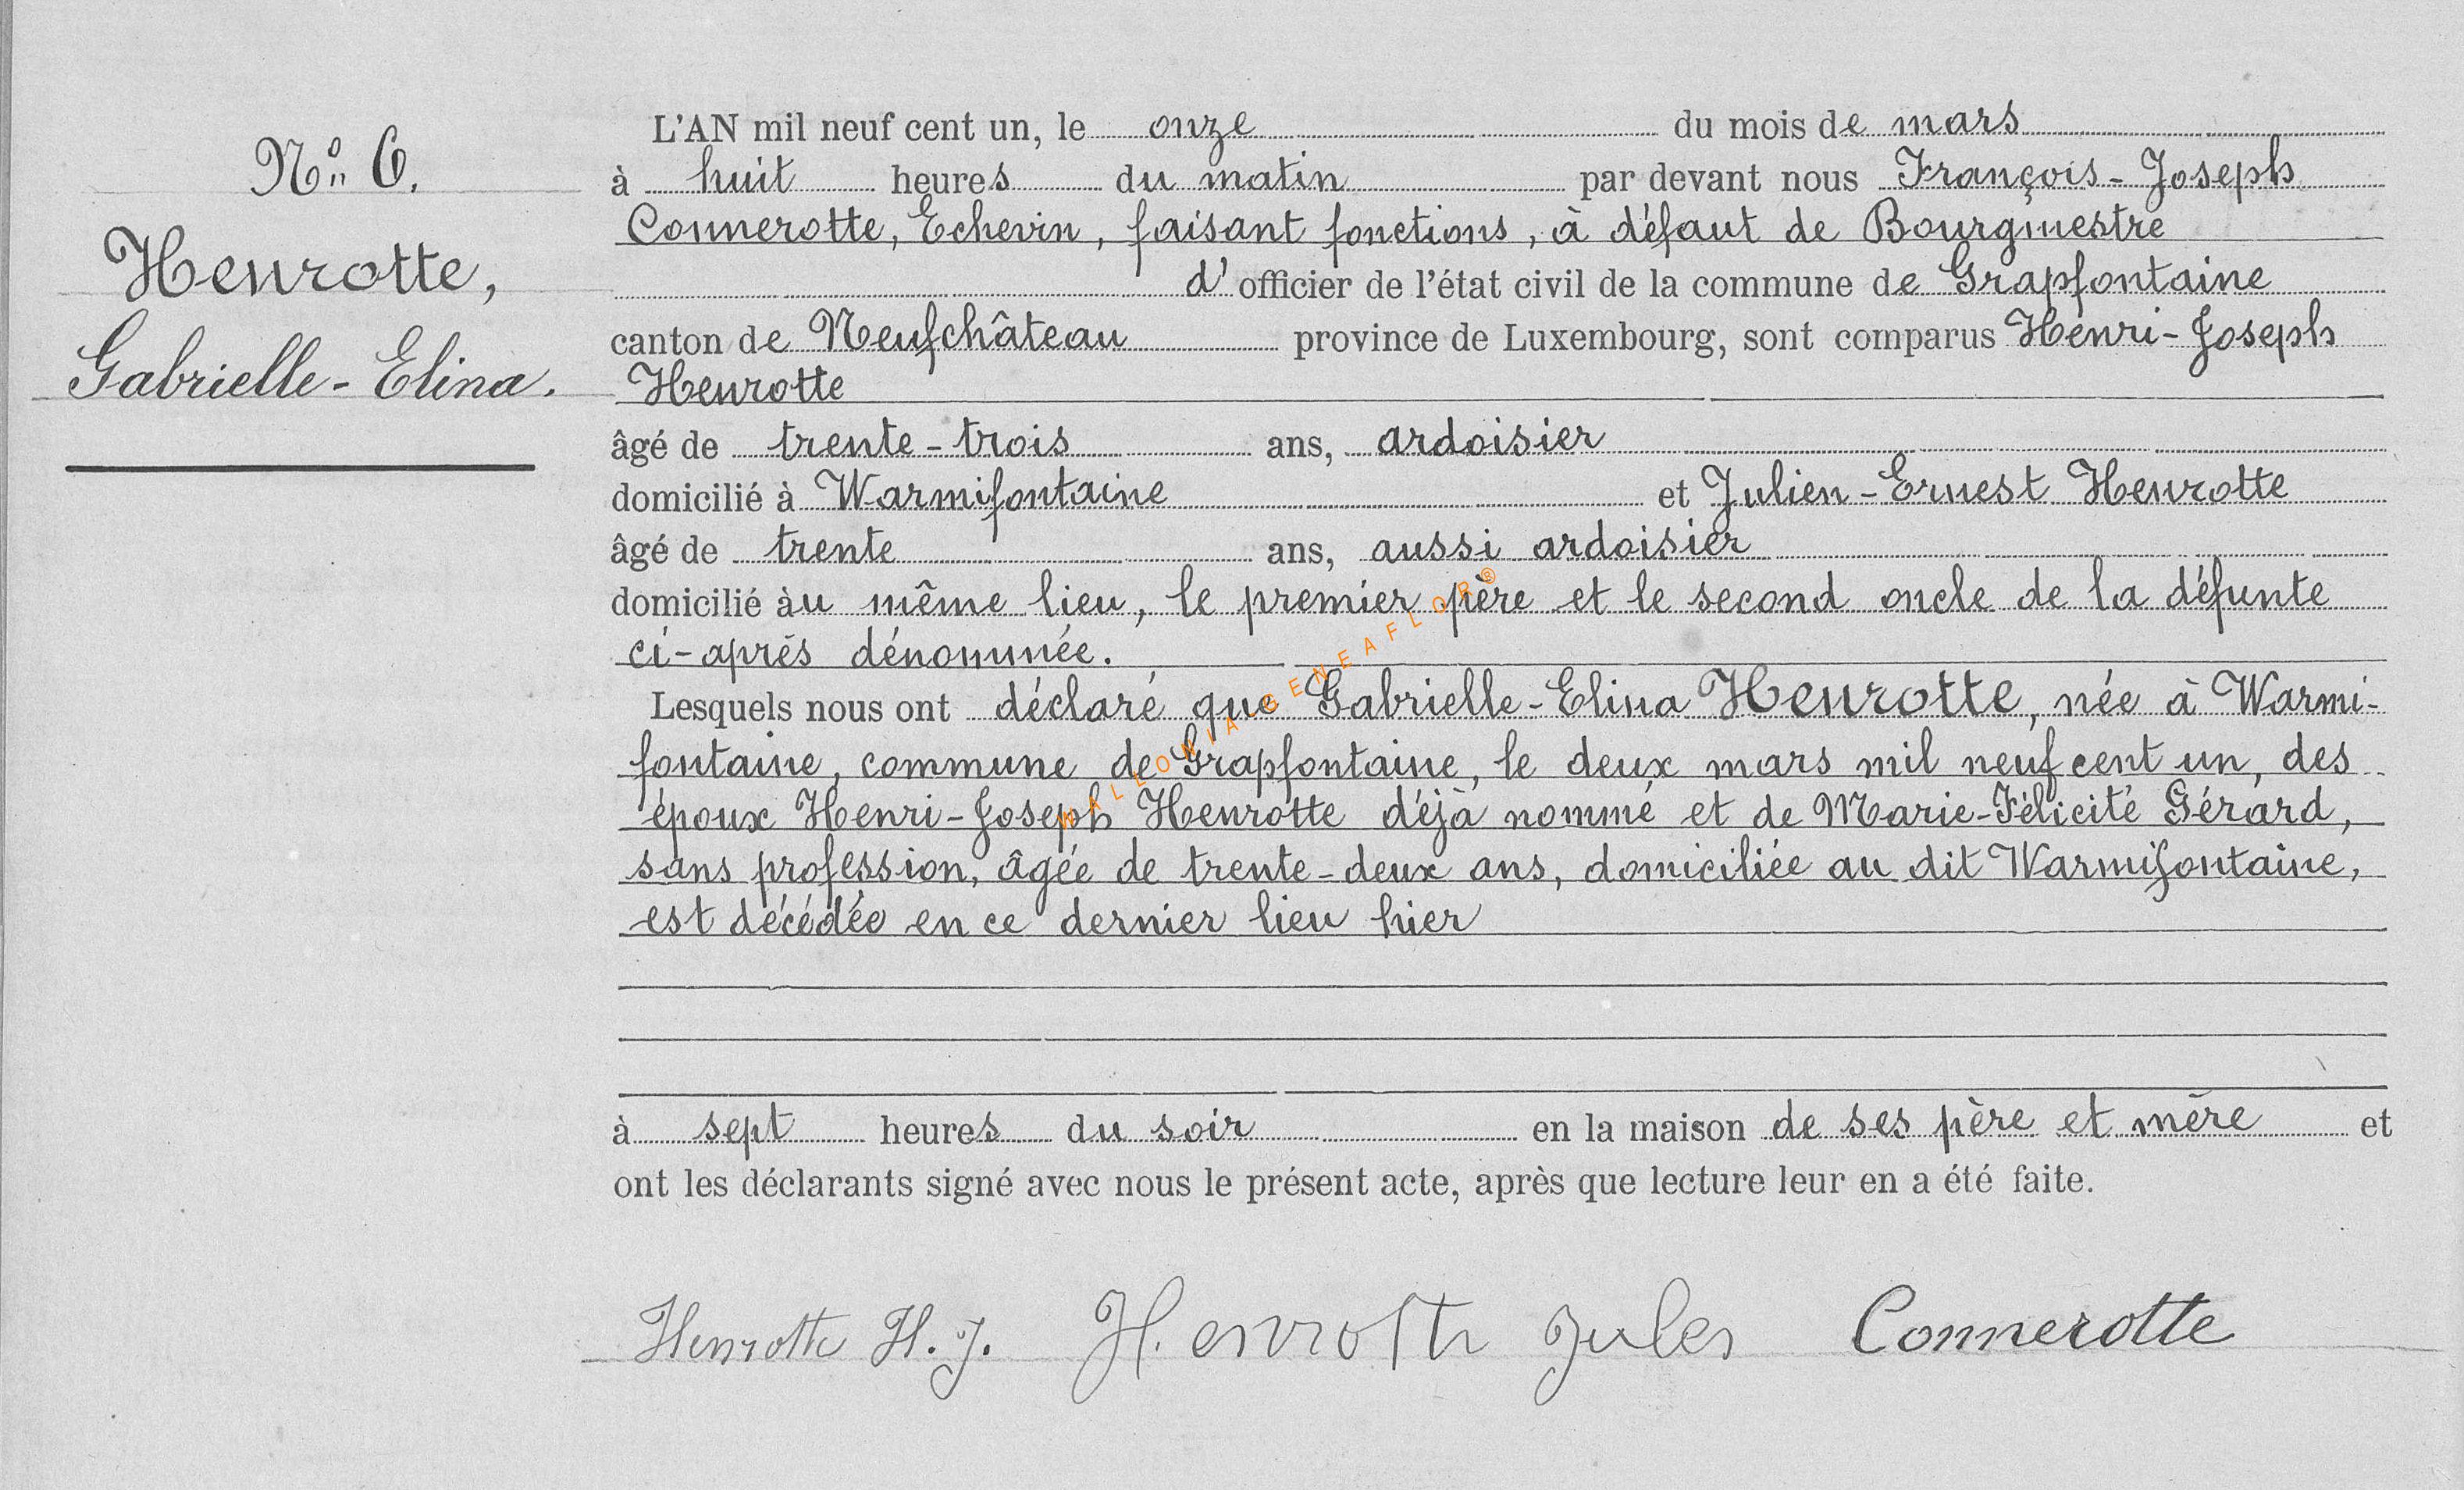 N°. 6.
Henrotte,
Gabrielle-Elina.
L'AN mil neuf cent un, le onze du mois de mars
à huit heures du matin par devant nous François-Joseph
Connerotte, Echevin, faisant fonctions, à défaut de Bourgmestre
d' officier de l'état civil de la commune de Grapfontaine
canton de Neufchâteau province de Luxembourg, sont comparus Henri-Joseph
Henrotte
âgé de trente-trois ans, ardoisier
domicilié à Warmifontaine et Julien-Ernest Henrotte
âgé de trente ans, aussi ardoisier
domicilié àu même lieu, le premier père et le second oncle de la défunte
ci-après dénommée.
Lesquels nous ont déclaré que Gabrielle-Elina Henrotte, née à Warmi-
fontaine, commune de Grapfontaine, le deux mars mil neuf cent un, des
époux Henri-Joseph Henrotte déjà nommé et de Marie-Félicité Gérard,
sans profession, âgée de trente-deux ans, domiciliée au dit Warmifontaine,
est décédée en ce dernier lieu hier
à sept heures du soir en la maison de ses père et mère et
ont les déclarants signé avec nous le présent acte, après que lecture leur en a été faite.
Henrotte H. J. Henrotte Jules Connerotte
WALLONIA GENEAFLOR®